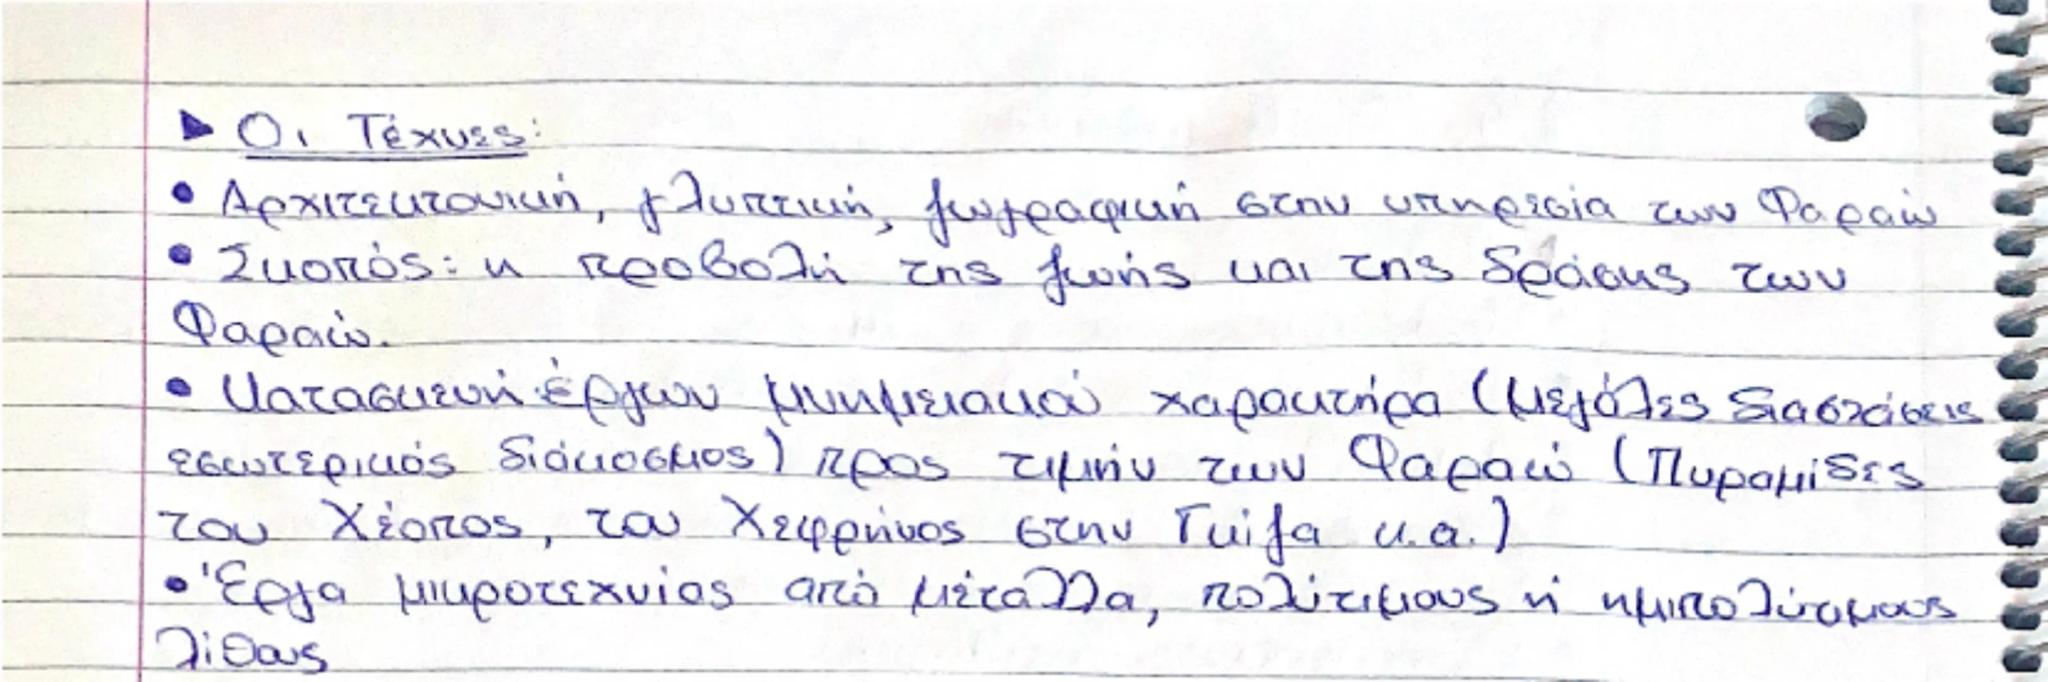 ► Οι Τέχνες:
• Αρχιτεκτονική, γλυπτική, ζωγραφική στην υπηρεσία των Φαραώ
• Σκοπός: η προβολή της ζωής και της δράσης των
Φαραώ.
• Κατασκευή έργων μνημειακού χαρακτήρα (μεγάλες διαστάσεις
εσωτερικός διάκοσμος) προς τιμήν των Φαραώ (Πυραμίδες
του Χέοπος, του Χεφρήνος στην Γκίζα κ.α.)
• Έργα μικροτεχνίας από μέταλλα, πολύτιμους ή ημιπολύτιμους
λίθους